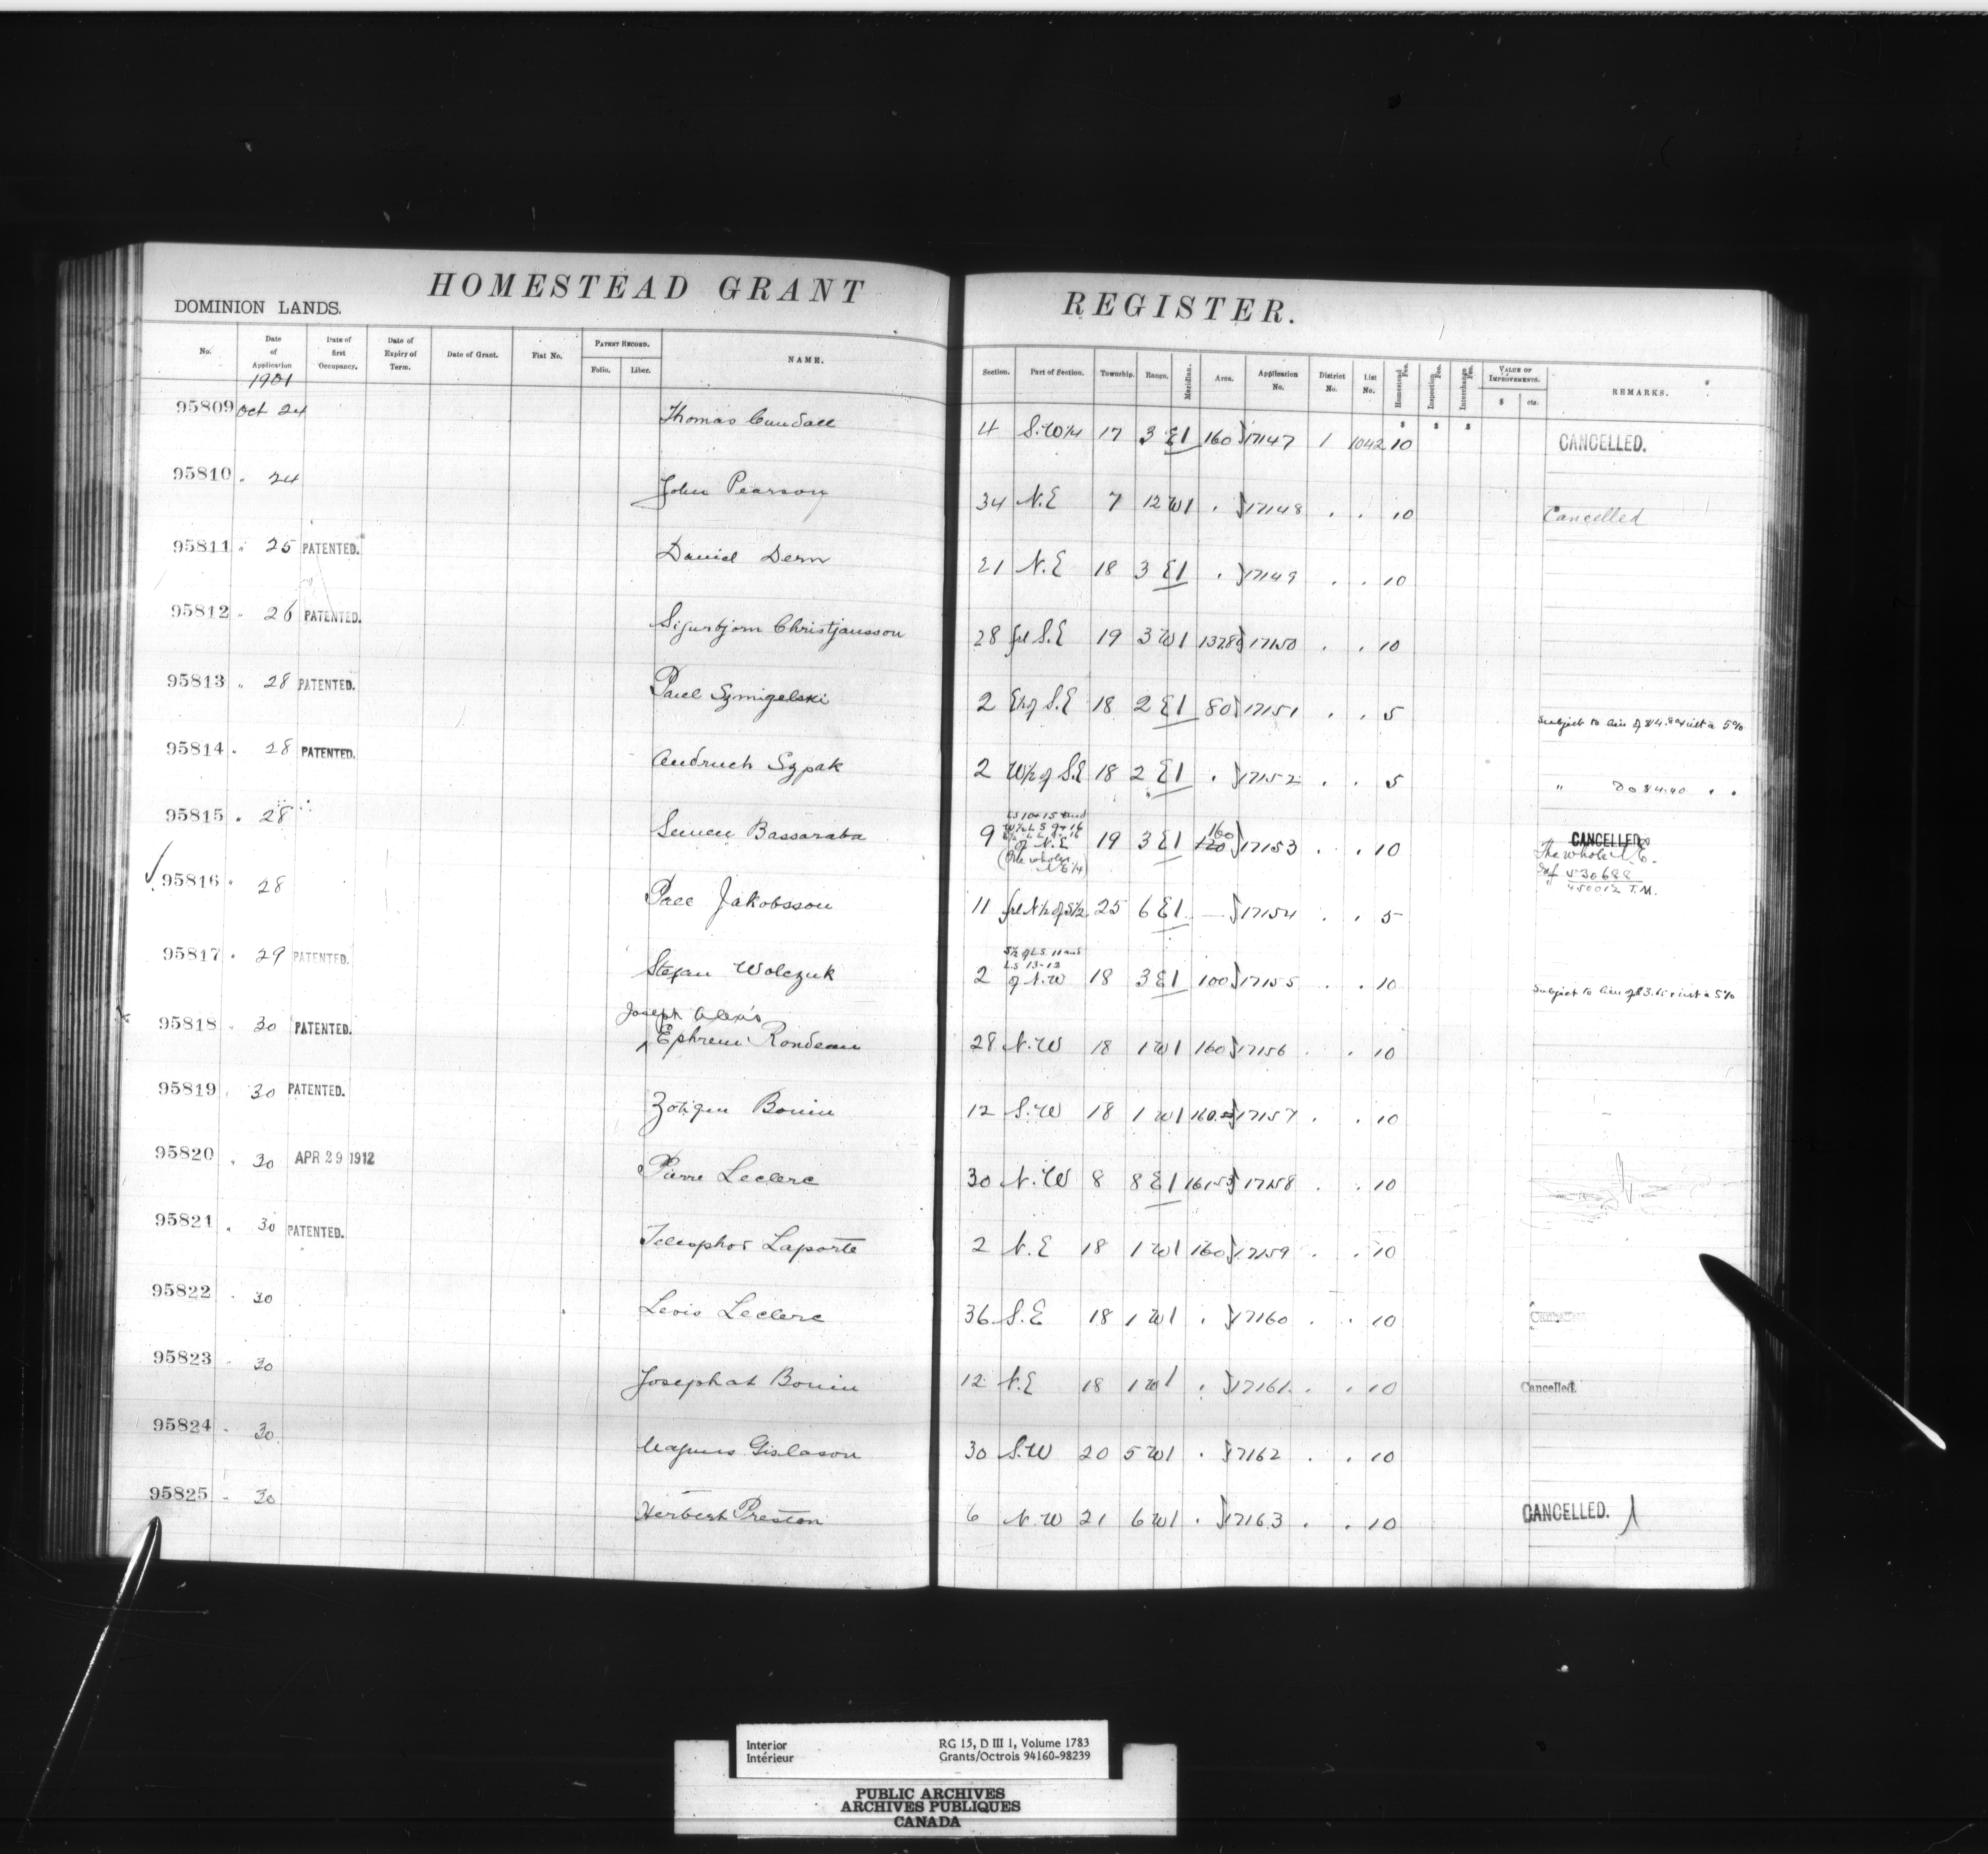 HOMESTEAD GRANT REGISTER.
DOMINION LANDS.
No. Date of Application Date of first Occupancy. Date of Expiry of Term. Date of Grant. Fiat No. PATENT RECORD. Folio. Liber. NAME. Section. Part of Section. Township. Range. Meridian. Area. Application No. District No. List No. Homestead Fee. Inspection Fee. Interchange Fee. VALUE OF IMPROVEMENTS. $ cts. REMARKS.
1901
$ $ $
95809 Oct 24 Thomas Cundall 4 S.W 1/4 17 3 E1 160 17147 1 1042 10 CANCELLED.
95810 " 24 John Pearson 34 N.E 7 12 W1 " 17148 " " 10 Cancelled
95811 " 25 PATENTED. Daniel Dern 21 N.E 18 3 E1 " 17149 " " 10
95812 " 26 PATENTED. Sigurbjorn Christjansson 28 frl S.E 19 3 W1 17150 " " 10
95813 " 28 PATENTED. Paul Szmigelski 2 E½ of S.E 18 2 E1 80 17151 " " 5 Subject to lien of int a 5%
95814 " 28 PATENTED. Andruch Szpak 2 W½ of S.E 18 2 E1 " 17152 " " 5 " Do $4.40 " "
LS 10 & 15 and
W½ L S 9 & 16
95815 " 28 Semen Bassaraba 9 of N.E 19 3 E1 160 120 17153 " " 10 CANCELLED
(The whole N E 1/4) The whole N.E.
Ref 530688
450012 T.M.
95816 " 28 Pall Jakobsson 11 frl N½ of S½ 25 6 E1 — 17154 " " 5
S½ of L.S. 11 and
L.S 13-12
95817 " 29 PATENTED. Stefan Wolczuk 2 of N.W 18 3 E1 100 17155 " " 10 Subject to lien of int a 5%
Joseph Alexis
95818 " 30 PATENTED. Ephrem Rondeau 28 N.W 18 1 W1 160 17156 " " 10
95819 " 30 PATENTED. Zotique Bonin 12 S.W 18 1 W1 160 17157 " " 10
95820 " 30 APR 29 1912 Pierre Leclerc 30 N.W 8 8 E1 17158 " " 10
95821 " 30 PATENTED. Telesphor Laporte 2 N.E 18 1 W1 160 17159 " " 10
95822 " 30 Levis Leclerc 36 S.E 18 1 W1 " 17160 " " 10
95823 " 30 Josephat Bonin 12 N.E 18 1 W1 " 17161 " " 10 Cancelled.
95824 " 30 Magnus Gislason 30 S.W 20 5 W1 " 17162 " " 10
95825 " 30 Herbert Preston 6 N.W 21 6 W1 " 17163 " " 10 CANCELLED.
Interior RG 15, D III 1, Volume 1783
Intérieur Grants/Octrois 94160-98239
PUBLIC ARCHIVES
ARCHIVES PUBLIQUES
CANADA